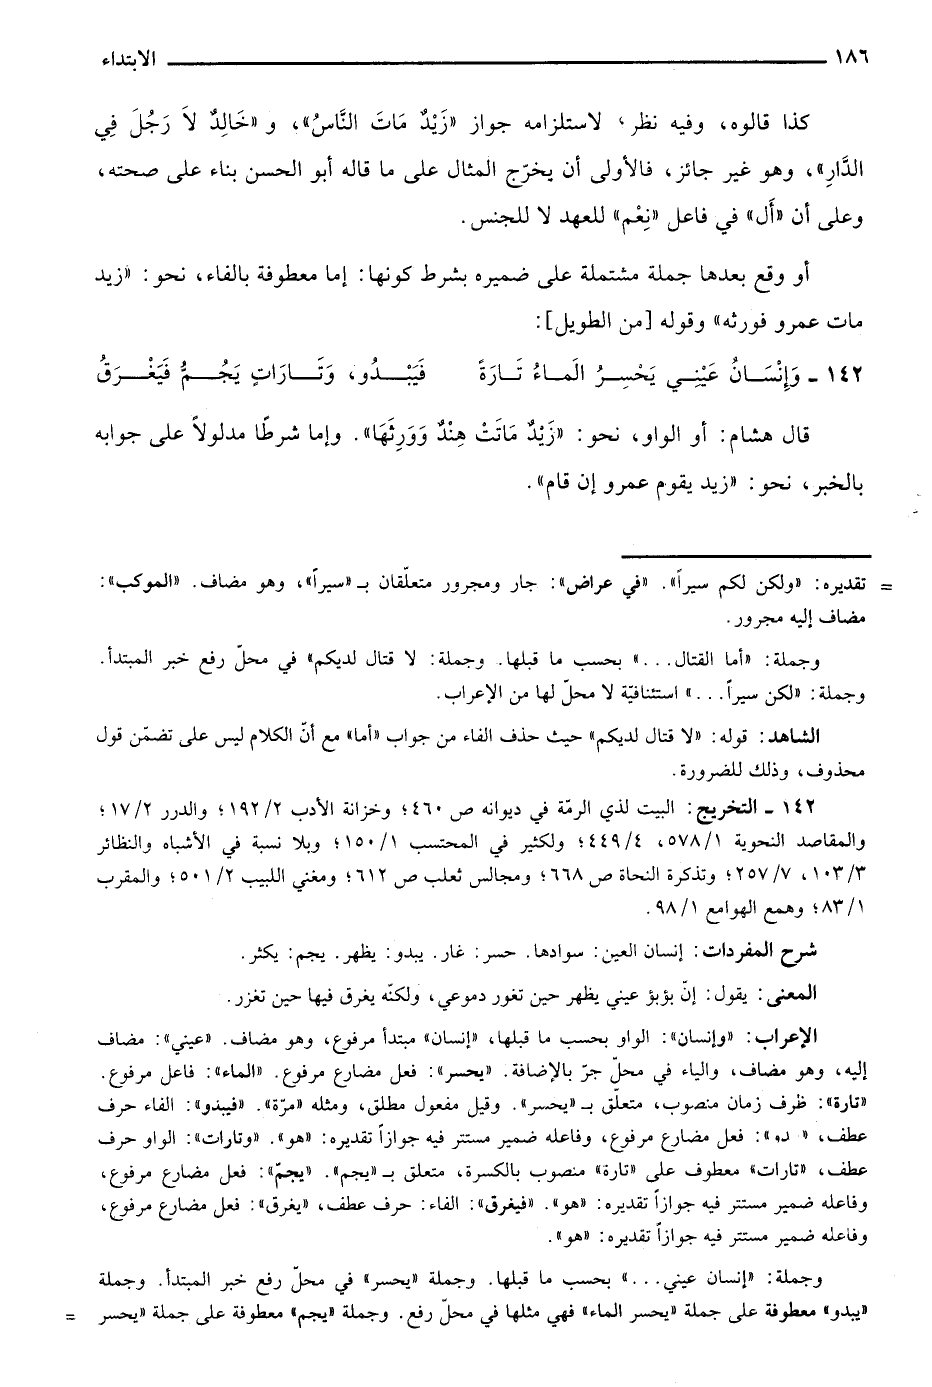 ١٨٦ الابتداء
كذا قالوه، وفيه نظر، لاستلزامه جواز «زَيْدٌ مَاتَ النَّاسُ»، و «خَالِدٌ لاَ رَجُلَ فِي
الدَّارِ»، وهو غير جائز، فالأولى أن يخرّج المثال على ما قاله أبو الحسن بناء على صحته،
وعلى أن «أَل» في فاعل «نِعْم» للعهد لا للجنس.
أو وقع بعدها جملة مشتملة على ضميره بشرط كونها: إما معطوفة بالفاء، نحو: «زيد
مات عمرو فورثه» وقوله [من الطويل]:
١٤٢ - وَإِنْسَانُ عَيْنِي يَحْسِرُ المَاءُ تَارَةً فَيَبْدُو، وَتَارَاتٍ يَجُمُّ فَيَغْرَقُ
قال هشام: أو الواو، نحو: «زَيْدٌ مَاتَتْ هِنْدٌ وَوَرِثَهَا». وإما شرطًا مدلولاً على جوابه
بالخبر، نحو: «زيد يقوم عمرو إن قام».
= تقديره: «ولكن لكم سيراً». «في عراض»: جار ومجرور متعلّقان بـ «سيراً»، وهو مضاف. «الموكب»:
مضاف إليه مجرور.
وجملة: «أما القتال...» بحسب ما قبلها. وجملة: لا قتال لديكم» في محلّ رفع خبر المبتدأ.
وجملة: «لكن سيراً...» استئنافيّة لا محلّ لها من الإعراب.
الشاهد: قوله: «لا قتال لديكم» حيث حذف الفاء من جواب «أما» مع أنّ الكلام ليس على تضمّن قول
محذوف، وذلك للضرورة.
١٤٢ - التخريج: البيت لذي الرمّة في ديوانه ص ٤٦٠؛ وخزانة الأدب ١٩٢/٢؛ والدرر ١٧/٢؛
والمقاصد النحوية ٥٧٨/١، ٤٤٩/٤؛ ولكثير في المحتسب ١٥٠/١؛ وبلا نسبة في الأشباه والنظائر
١٠٣/٣، ٢٥٧/٧؛ وتذكرة النحاة ص ٦٦٨؛ ومجالس ثعلب ص ٦١٢؛ ومغني اللبيب ٥٠١/٢؛ والمقرب
٨٣/١؛ وهمع الهوامع ٩٨/١.
شرح المفردات: إنسان العين: سوادها. حسر: غار. يبدو: يظهر. يجم: يكثر.
المعنى: يقول: إنّ بؤبؤ عيني يظهر حين تغور دموعي، ولكنّه يغرق فيها حين تغزر.
الإعراب: «وإنسان»: الواو بحسب ما قبلها، «إنسان» مبتدأ مرفوع، وهو مضاف. «عيني»: مضاف
إليه، وهو مضاف، والياء في محلّ جرّ بالإضافة. «يحسر»: فعل مضارع مرفوع. «الماء»: فاعل مرفوع.
«تارة»: ظرف زمان منصوب، متعلّق بـ «يحسر». وقيل مفعول مطلق، ومثله «مرّة». «فيبدو»: الفاء حرف
عطف، « دو»: فعل مضارع مرفوع، وفاعله ضمير مستتر فيه جوازاً تقديره: «هو». «وتارات»: الواو حرف
عطف، «تارات» معطوف على «تارة» منصوب بالكسرة، متعلق بـ «يجم». «يجمّ»: فعل مضارع مرفوع،
وفاعله ضمير مستتر فيه جوازاً تقديره: «هو». «فيغرق»: الفاء: حرف عطف، «يغرق»: فعل مضارع مرفوع،
وفاعله ضمير مستتر فيه جوازاً تقديره: «هو».
وجملة: «إنسان عيني...» بحسب ما قبلها. وجملة «يحسر» في محلّ رفع خبر المبتدأ. وجملة
«يبدو» معطوفة على جملة «يحسر الماء» فهي مثلها في محلّ رفع. وجملة «يجم» معطوفة على جملة «يحسر =